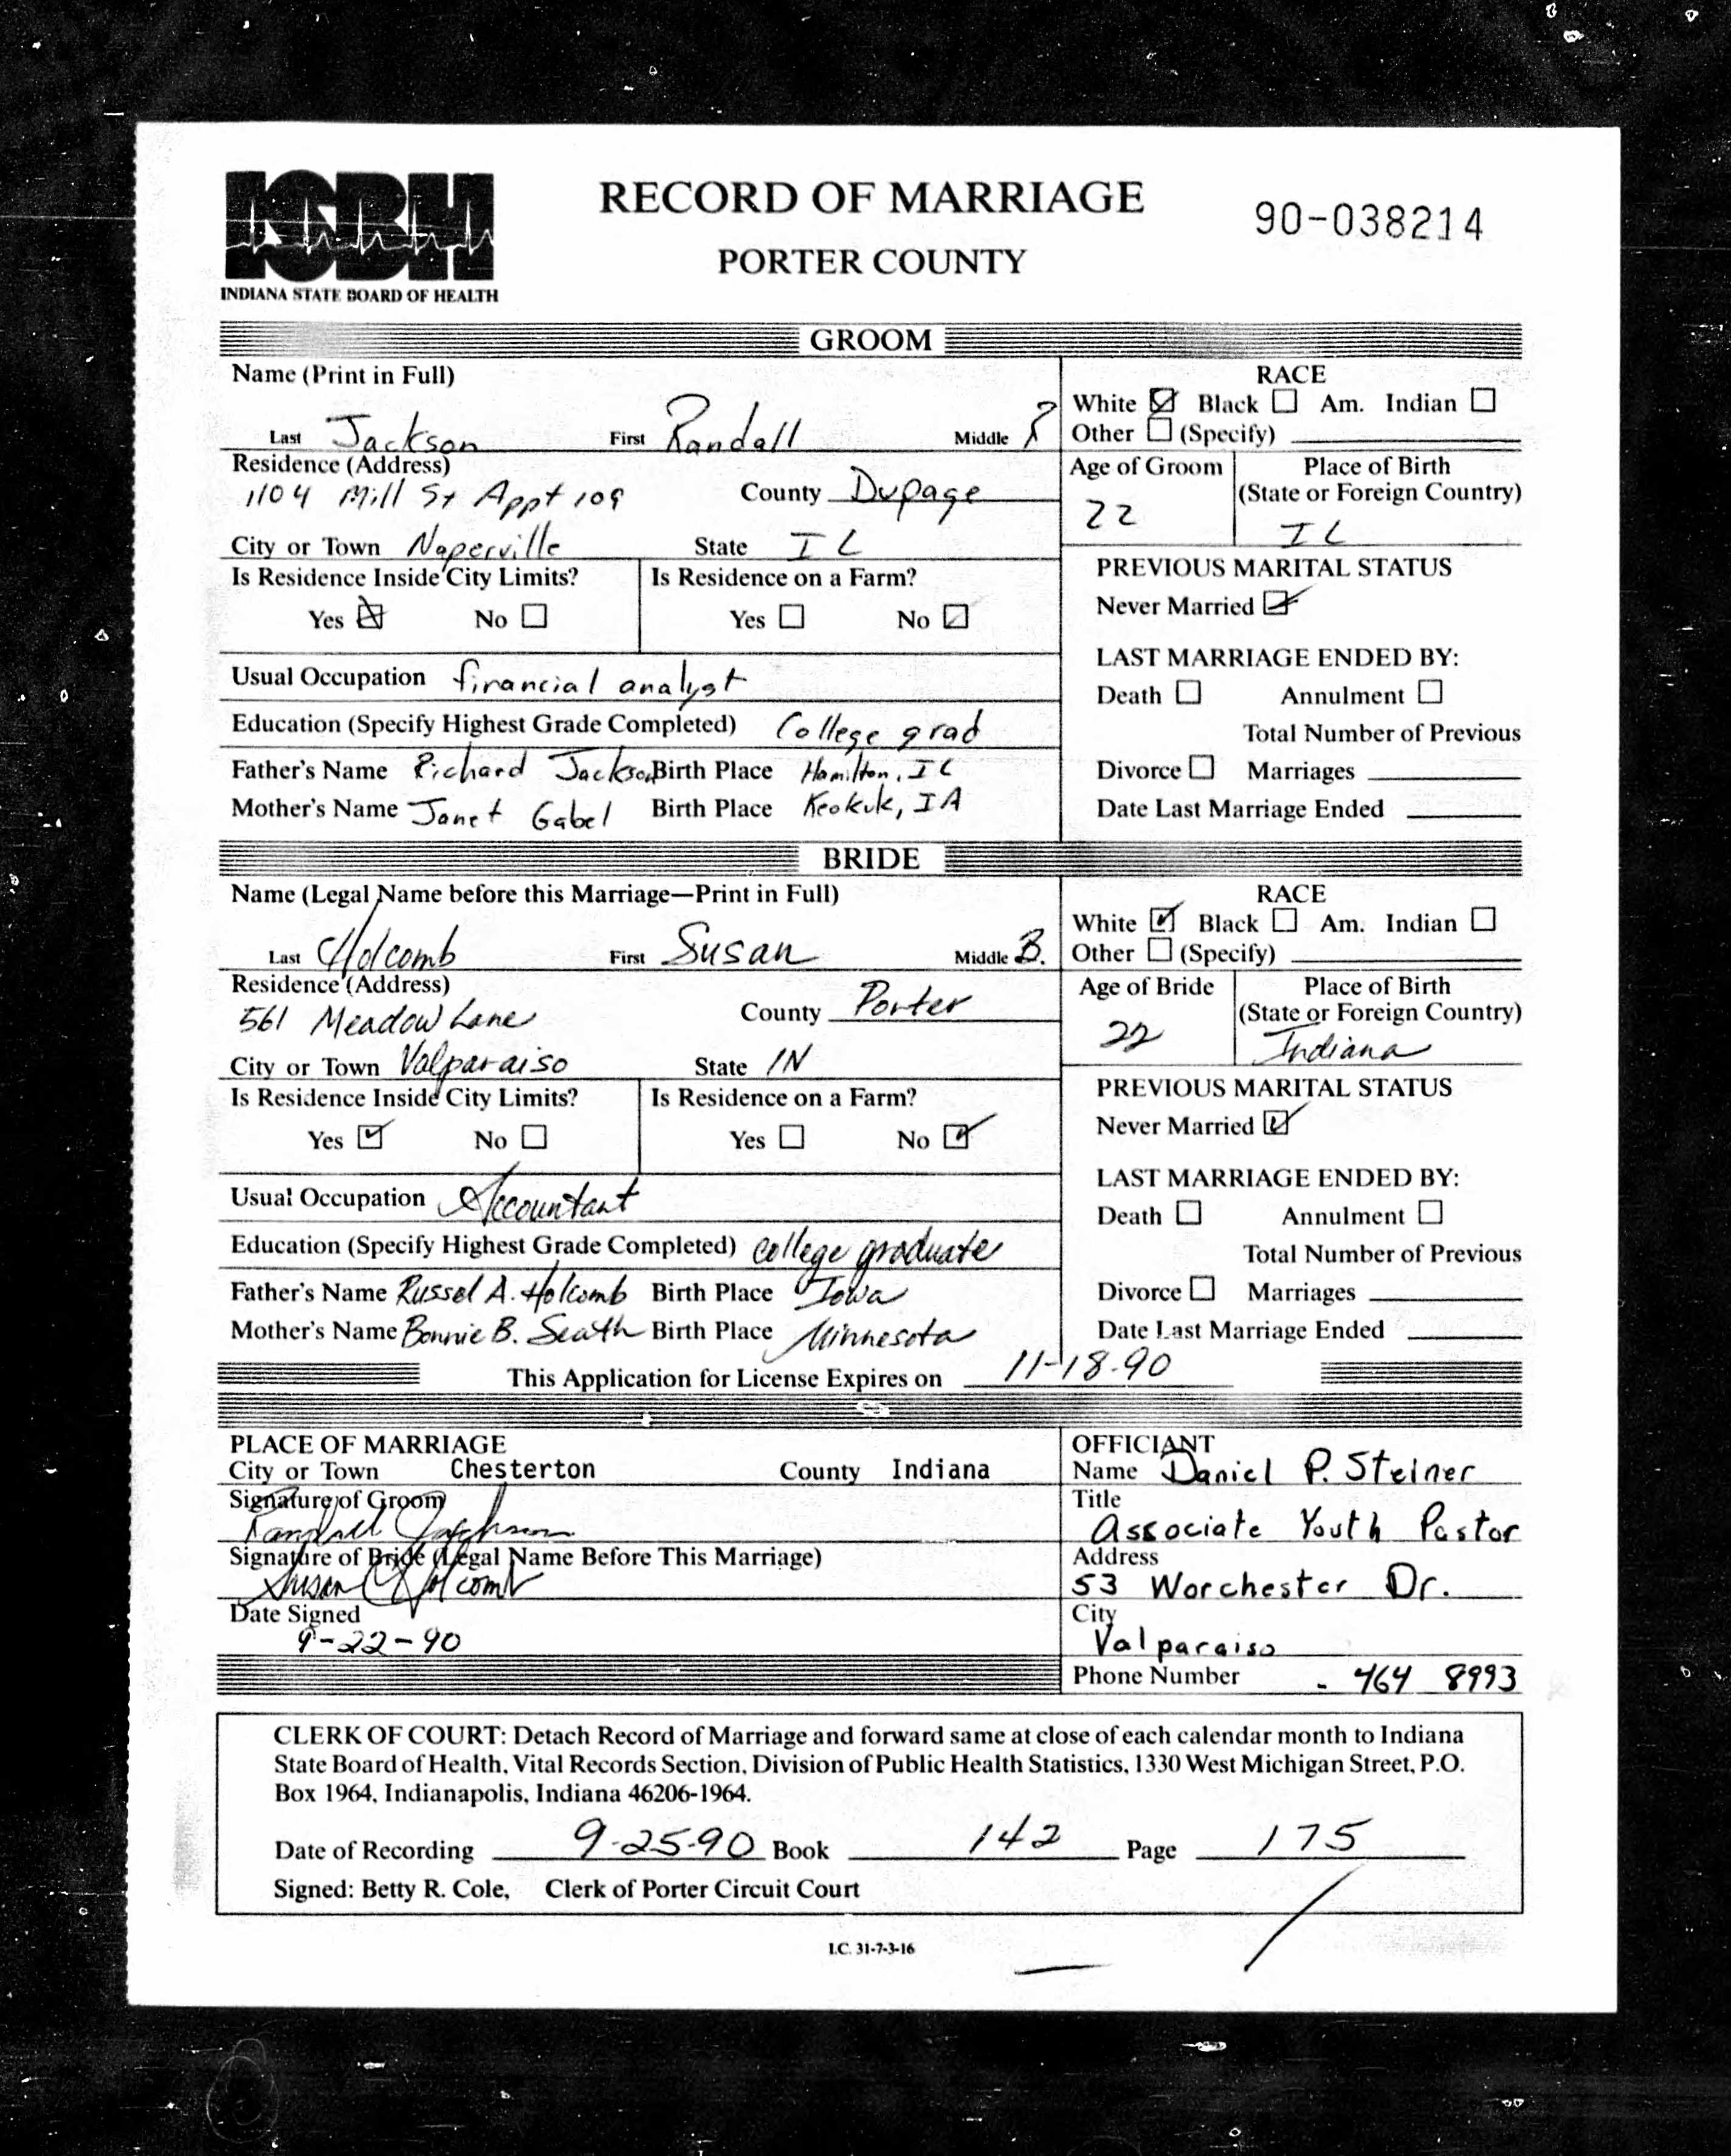 ISBH
INDIANA STATE BOARD OF HEALTH
RECORD OF MARRIAGE
PORTER COUNTY
90-038214
GROOM
Name (Print in Full)
Last Jackson First Randall Middle R
RACE
White ☑ Black ☐ Am. Indian ☐
Other ☐ (Specify)
Residence (Address)
1104 Mill St Appt 109 County Dupage
City or Town Naperville State IL
Age of Groom
22
Place of Birth
(State or Foreign Country)
IL
Is Residence Inside City Limits?
Yes ☒ No ☐
Is Residence on a Farm?
Yes ☐ No ☑
PREVIOUS MARITAL STATUS
Never Married ☑
Usual Occupation financial analyst
Education (Specify Highest Grade Completed) College grad
Father's Name Richard Jackson Birth Place Hamilton, IL
Mother's Name Janet Gabel Birth Place Keokuk, IA
LAST MARRIAGE ENDED BY:
Death ☐ Annulment ☐
Total Number of Previous
Divorce ☐ Marriages
Date Last Marriage Ended
BRIDE
Name (Legal Name before this Marriage—Print in Full)
Last Holcomb First Susan Middle B.
RACE
White ☑ Black ☐ Am. Indian ☐
Other ☐ (Specify)
Residence (Address)
561 Meadow Lane County Porter
City or Town Valparaiso State IN
Age of Bride
22
Place of Birth
(State or Foreign Country)
Indiana
Is Residence Inside City Limits?
Yes ☑ No ☐
Is Residence on a Farm?
Yes ☐ No ☑
PREVIOUS MARITAL STATUS
Never Married ☑
Usual Occupation Accountant
Education (Specify Highest Grade Completed) college graduate
Father's Name Russel A. Holcomb Birth Place Iowa
Mother's Name Bonnie B. Seath Birth Place Minnesota
LAST MARRIAGE ENDED BY:
Death ☐ Annulment ☐
Total Number of Previous
Divorce ☐ Marriages
Date Last Marriage Ended
This Application for License Expires on 11-18-90
PLACE OF MARRIAGE
City or Town Chesterton County Indiana
Signature of Groom
Randall Jackson
Signature of Bride (Legal Name Before This Marriage)
Susan Holcomb
Date Signed
9-22-90
OFFICIANT
Name Daniel P. Steiner
Title
Associate Youth Pastor
Address
53 Worchester Dr.
City
Valparaiso
Phone Number - 464 8993
CLERK OF COURT: Detach Record of Marriage and forward same at close of each calendar month to Indiana
State Board of Health, Vital Records Section, Division of Public Health Statistics, 1330 West Michigan Street, P.O.
Box 1964, Indianapolis, Indiana 46206-1964.
Date of Recording 9-25-90 Book 142 Page 175
Signed: Betty R. Cole, Clerk of Porter Circuit Court
I.C. 31-7-3-16